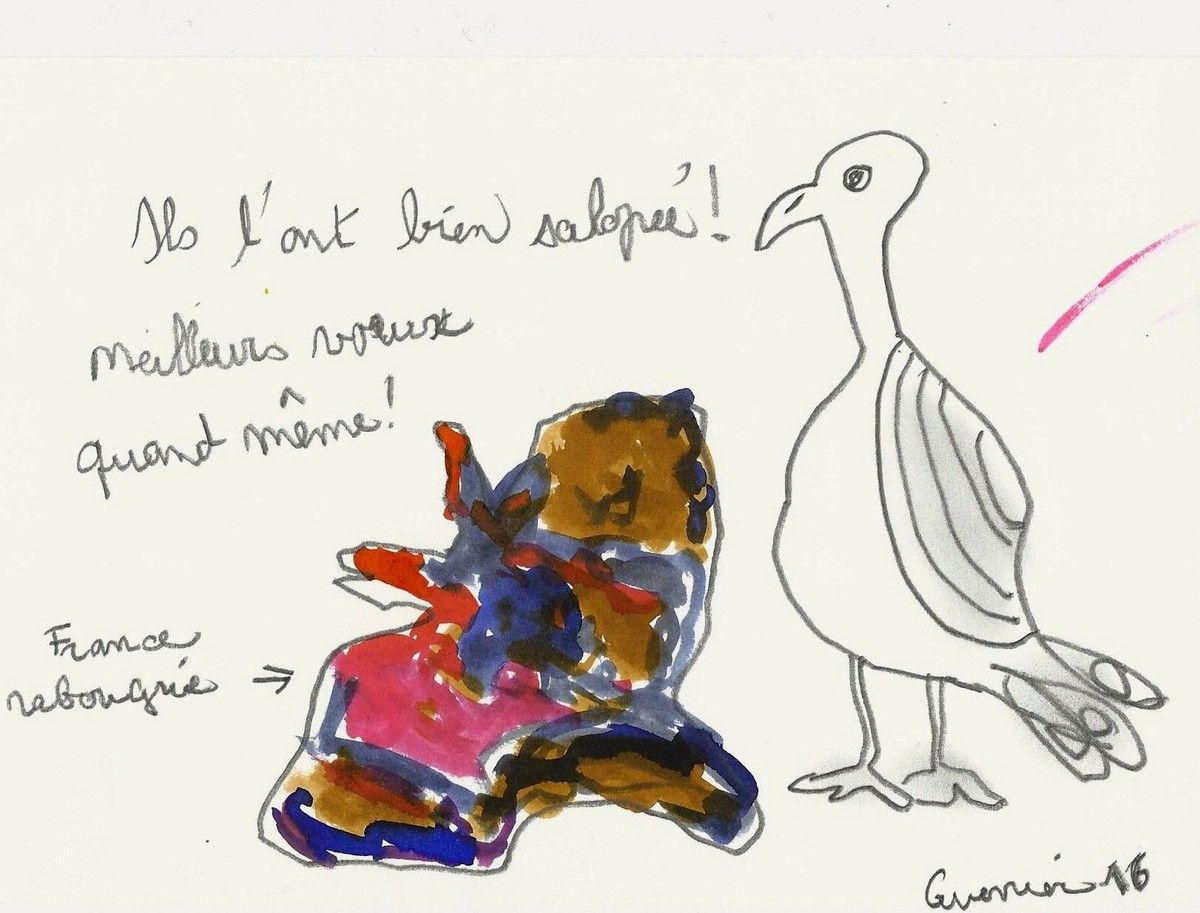 Ils l'ont bien salopée!
Meilleurs vœux
quand même!
France
rabougrie
16